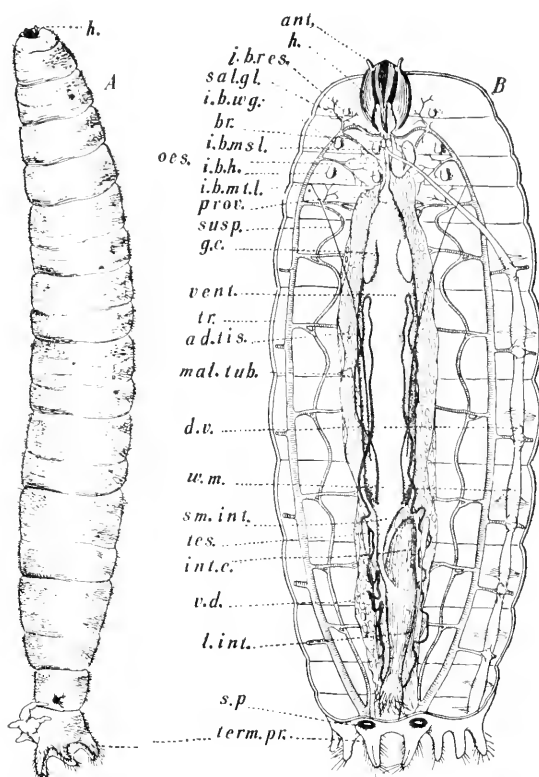 ant,
h.
h.
i.b.res.
A
B
sal.gl.
i.b.wg.
br.
i.b.msl.
oes.
i.b.h.
i.b.mt.l.
prov.
susp.
g.c.
vent.
tr.
ad.tis.
mal.tub.
d.v.
w.m.
sm.int.
tes.
int.c.
v.d.
l.int.
s.p
term.pr.